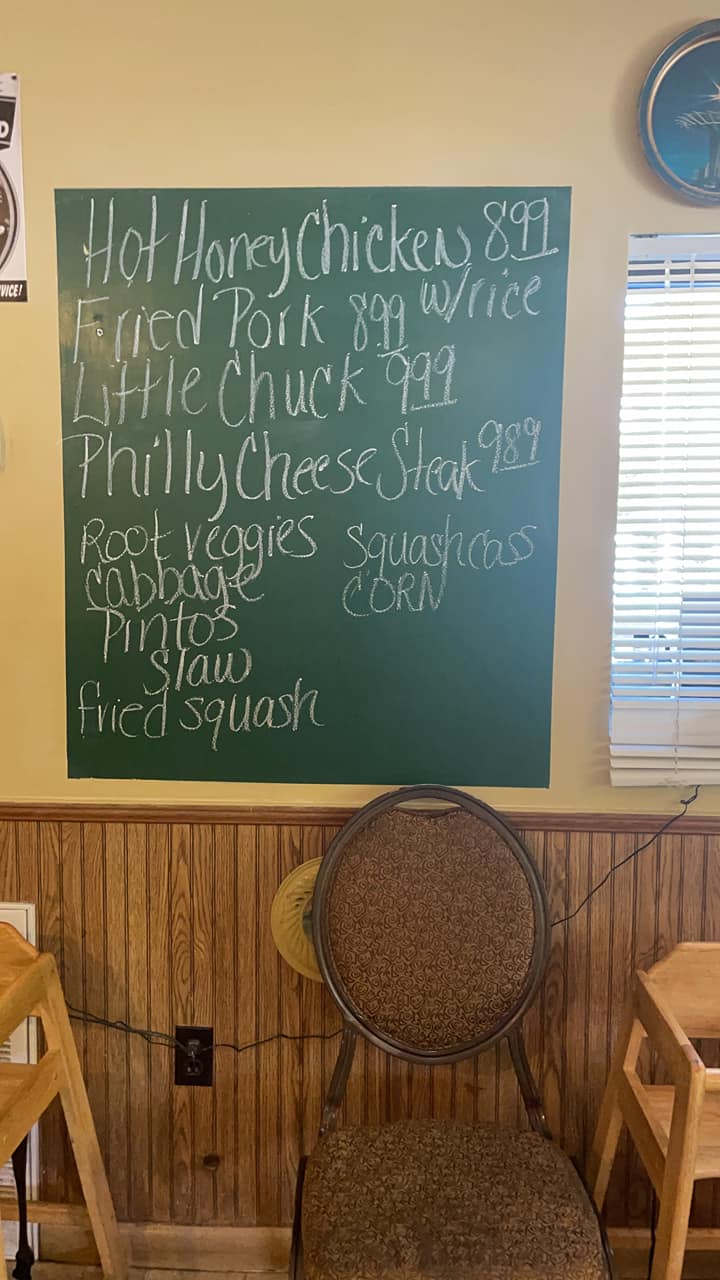 Hot Honey Chicken 8.99
w/rice
Fried Pork 8.99
Little Chuck 9.99
Philly Cheese Steak 9.89
Root veggies
cabbage
Pintos
Slaw
fried squash
Squash cass
CORN
VICE!
D